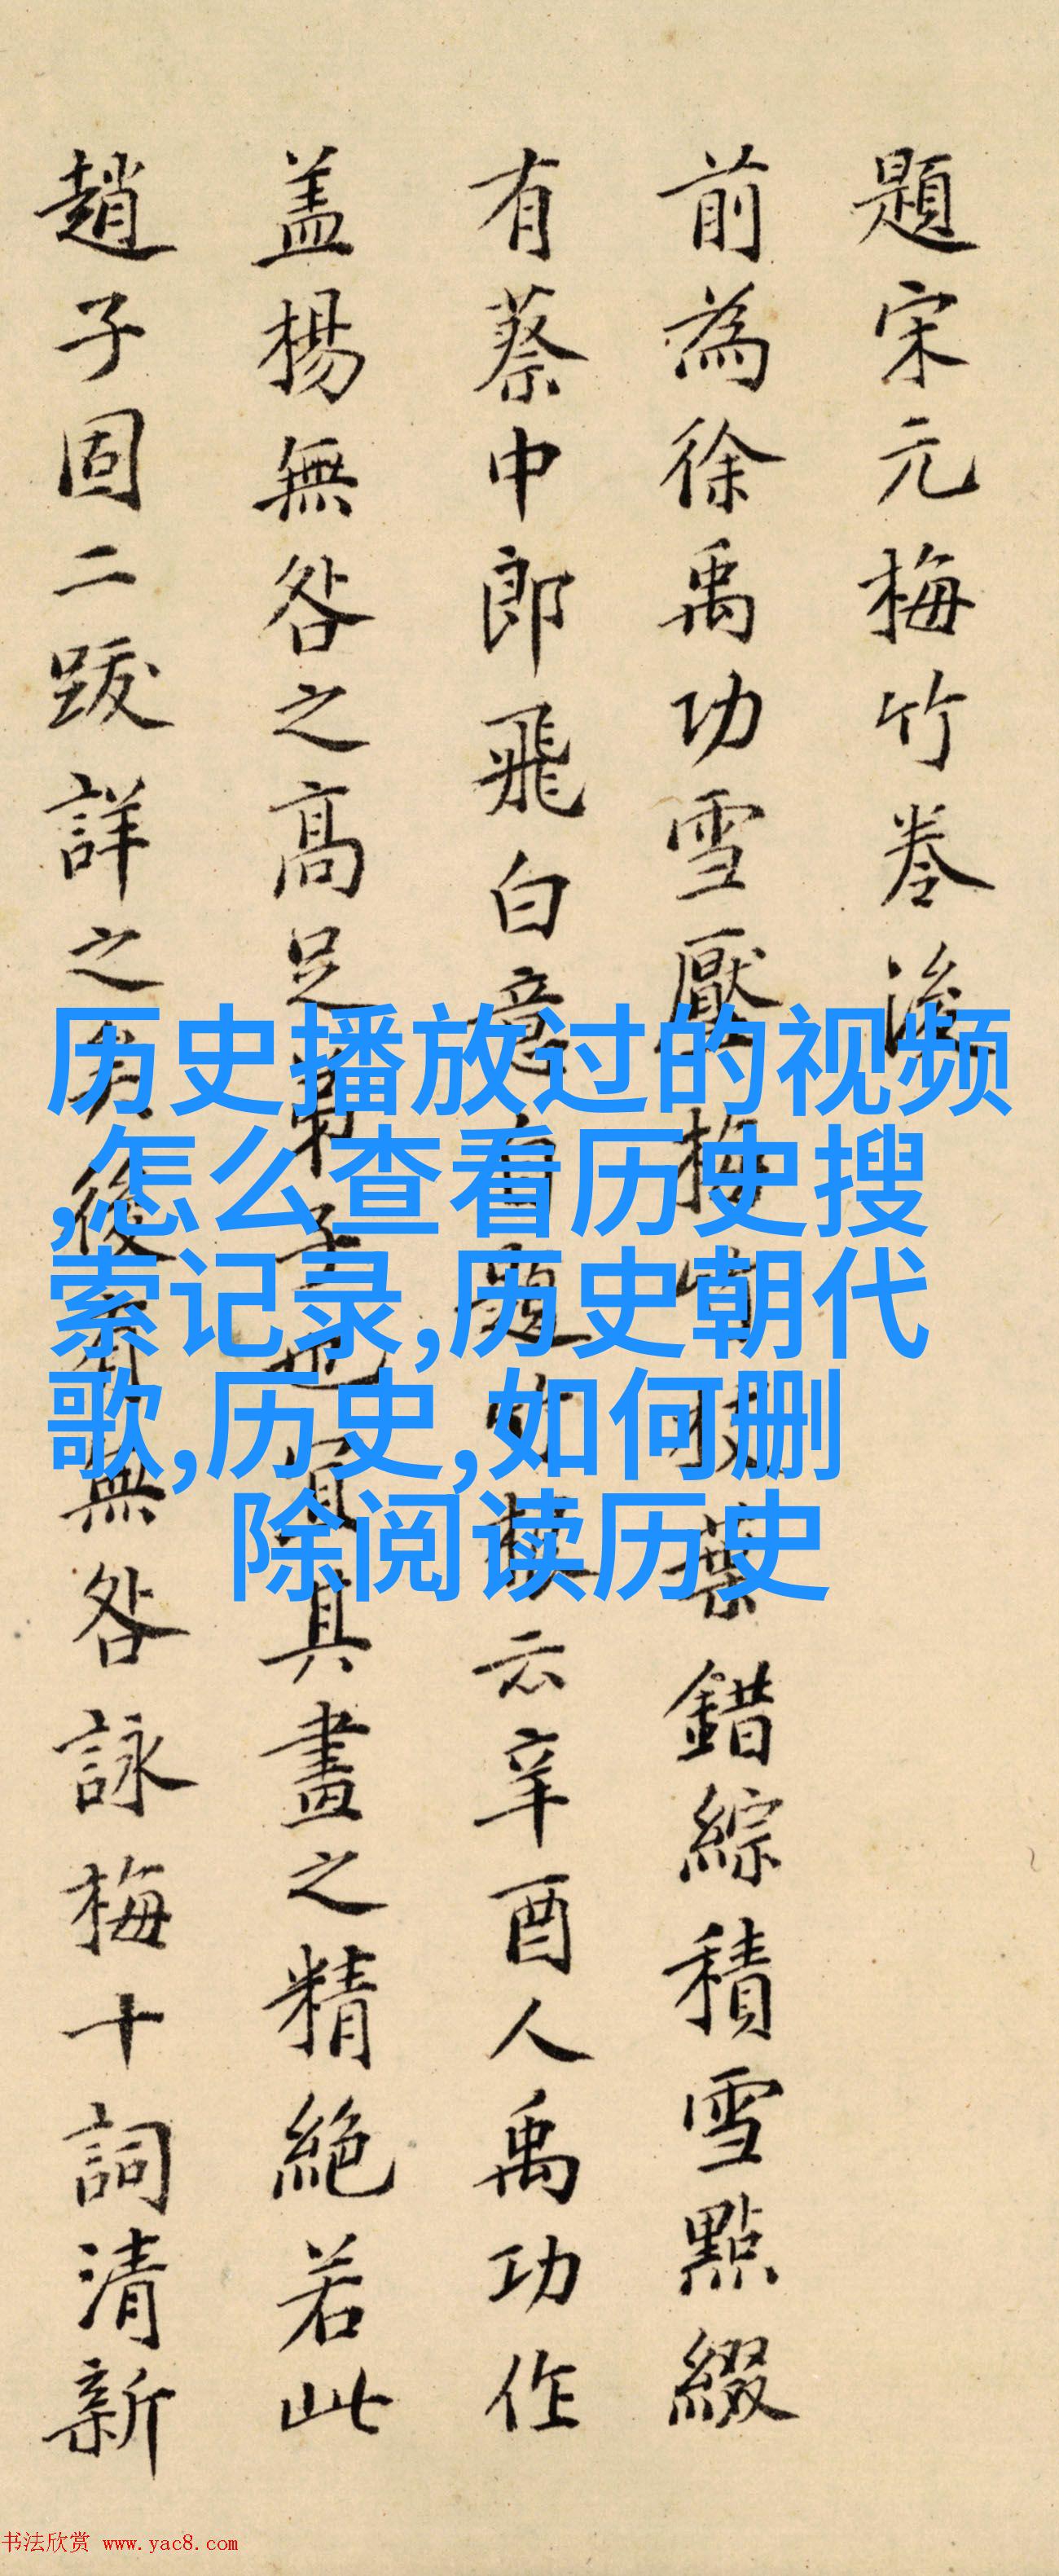 題宋元梅竹卷後
前為徐禹功雪壓梅竹枝葉錯綜積雪點綴
有蔡中郎飛白意自題款云辛酉人禹功作
盖楊無咎之高足弟子也宜其畫之精絕若此
趙子固二跋詳之矣後有無咎詠梅十詞清新
历史播放过的视频
,怎么查看历史搜
索记录,历史朝代
歌,历史,如何删
除阅读历史
书法欣赏 www.yac8.com